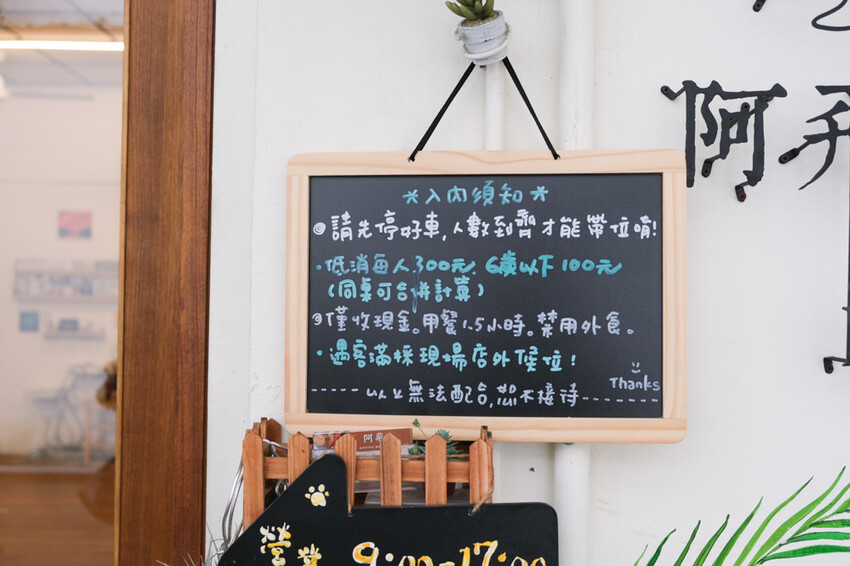 阿
*入內須知*
◎請先停好車,人數到齊才能帶位唷!
・低消每人300元, 6歲以下100元
(同桌可合併計算)
◎僅收現金。用餐1.5小時。禁用外食。
・遇客滿採現場店外候位!
Thanks
-----以上無法配合,恕不接待-----
阿
營業 9:00-17:00